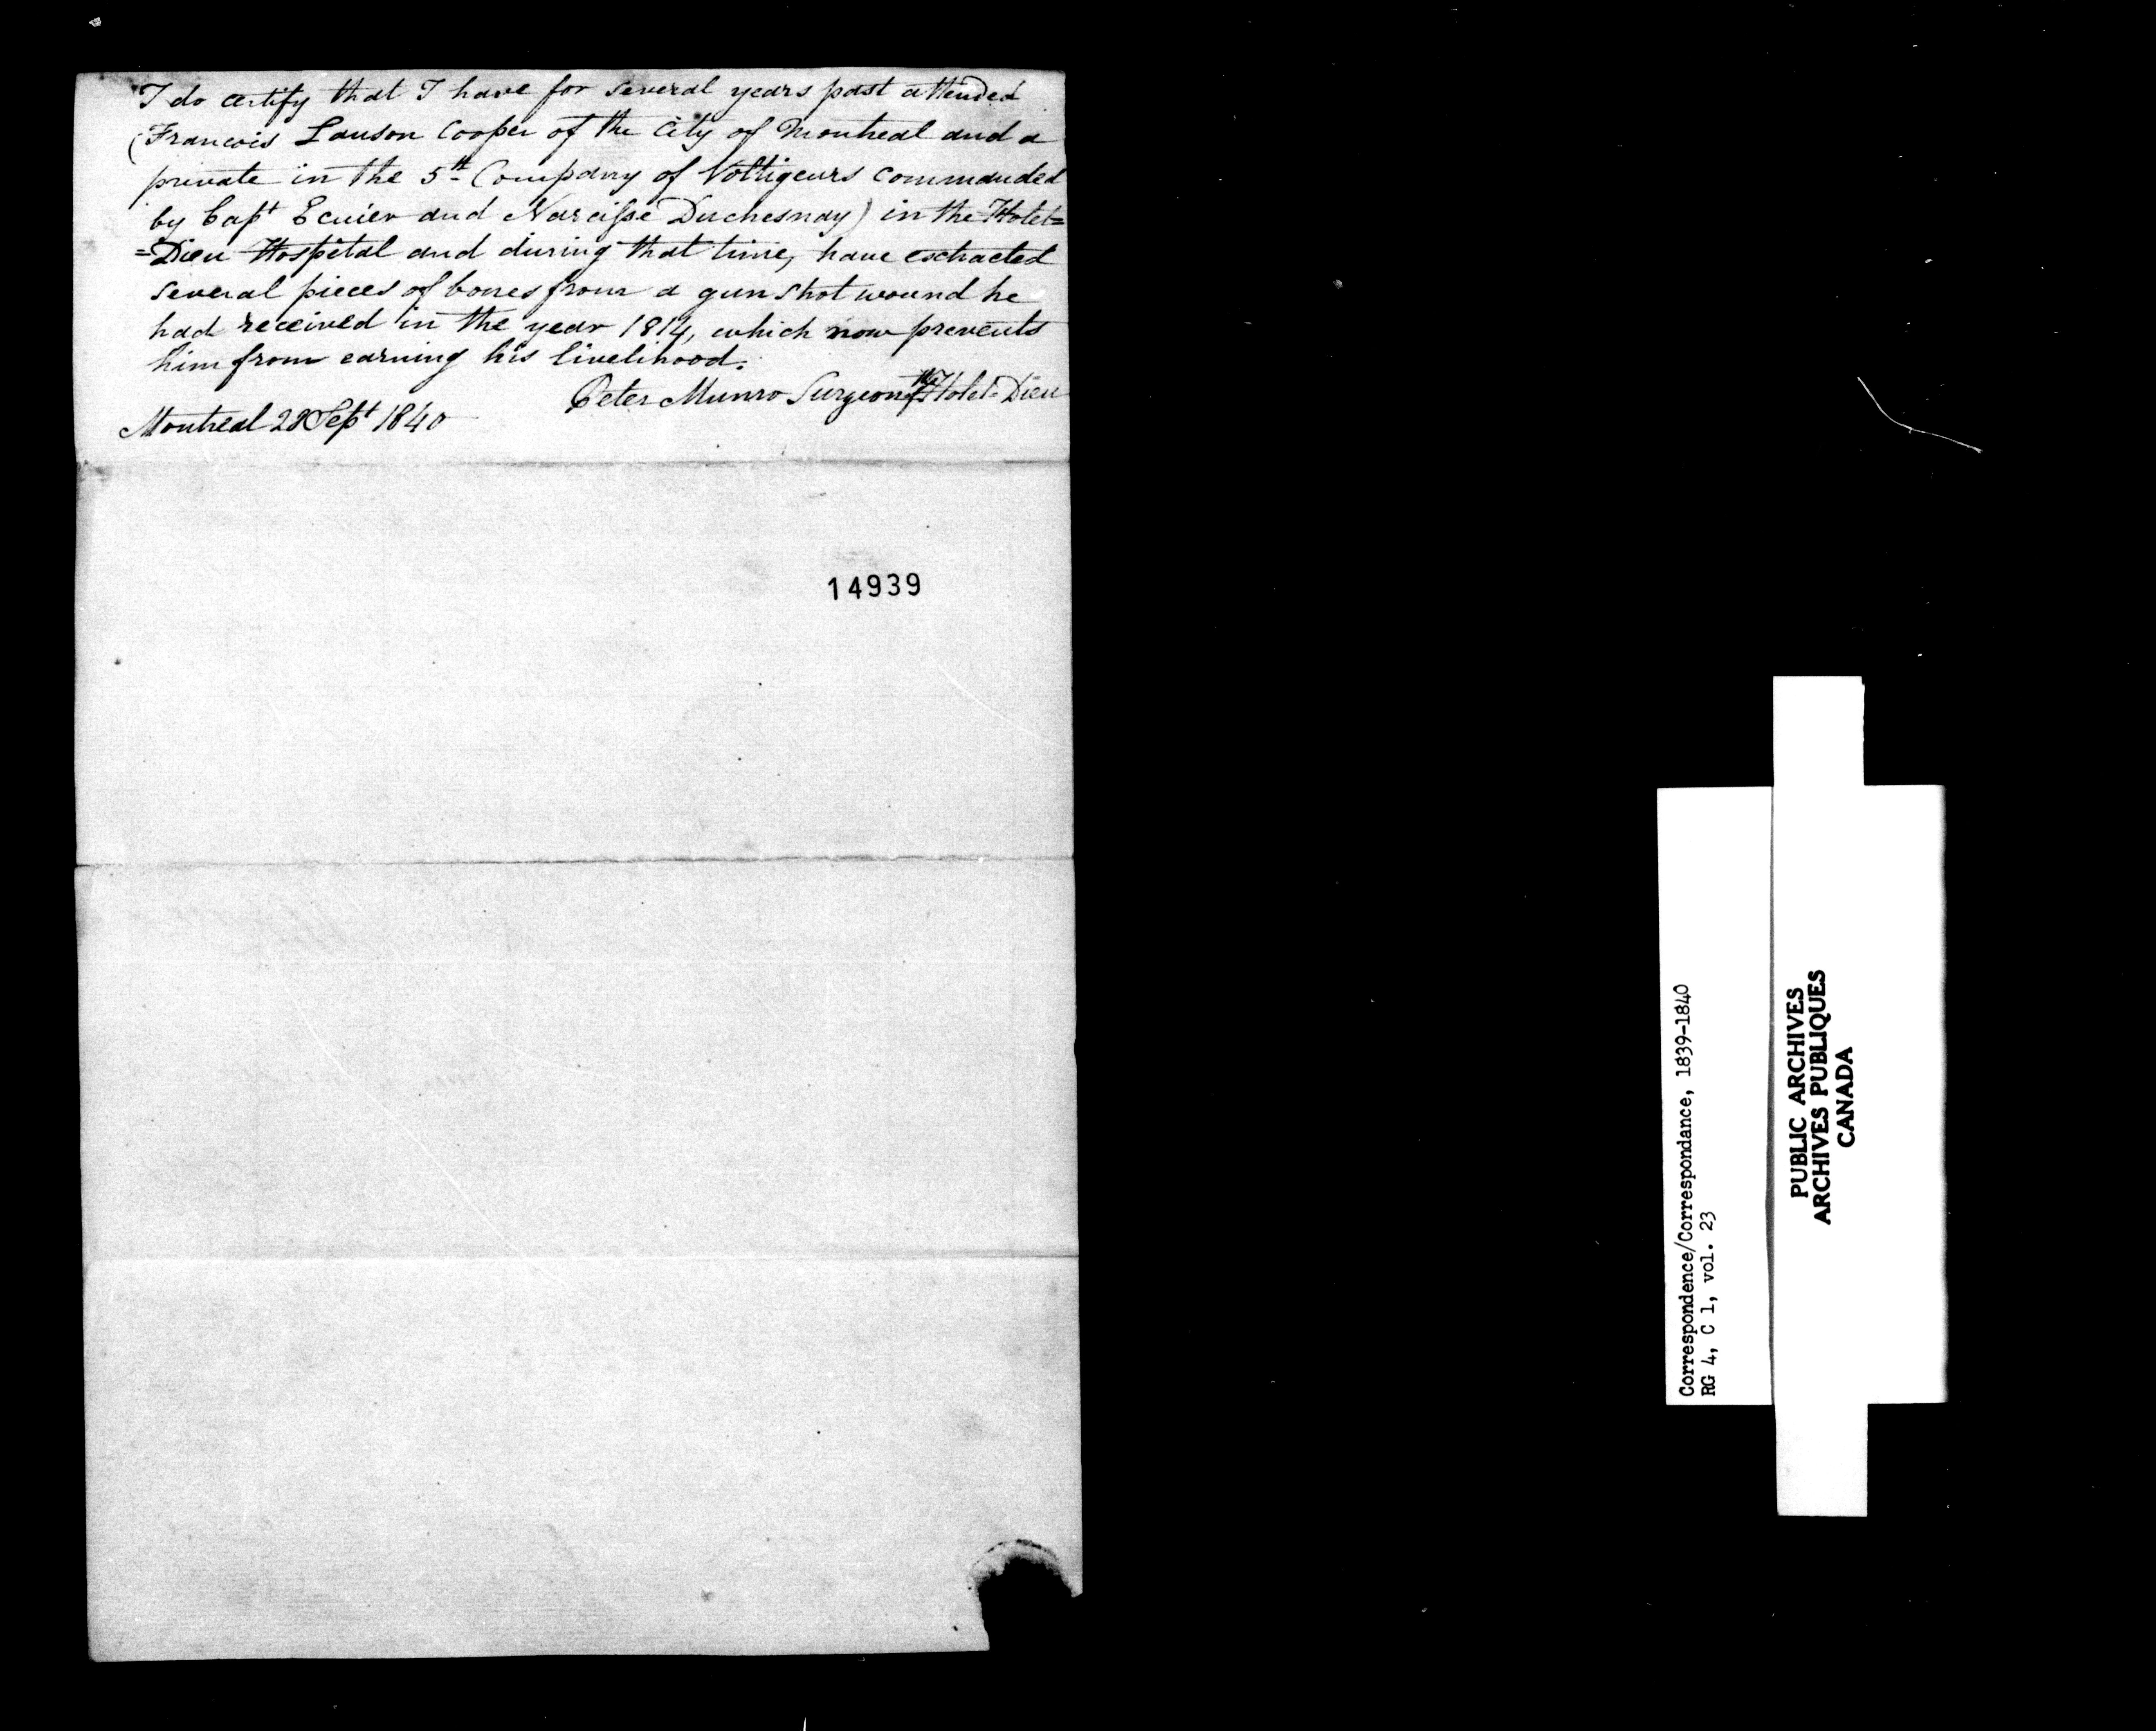 I do certify that I have for several years past attended
(Francois Lauson Cooper of the City of Montreal and a
private in the 5th Company of Voltigeurs commanded
by Capt Ecuier and Narcisse Duchesnay) in the Hotel=
=Dieu Hospital and during that time, have exstracted
several pieces of bones from a gun shot wound he
had received in the year 1814, which now prevents
him from earning his livelihood.
Peter Munro Surgeon Hotel-Dieu
Montreal 28 Sept 1840
14939
Correspondence/Correspondance, 1839-1840
RG 4, C 1, vol. 23
PUBLIC ARCHIVES
ARCHIVES PUBLIQUES
CANADA